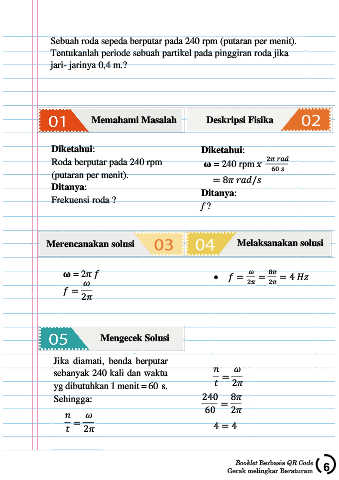 Sebuah roda sepeda berputar pada 240 rpm (putaran per menit).
Tentukanlah periode sebuah partikel pada pinggiran roda jika
jari- jarinya 0,4 m.?
01 Memahami Masalah
Diketahui:
Roda berputar pada 240 rpm
(putaran per menit).
Ditanya:
Frekuensi roda ?
Deskripsi Fisika 02
Diketahui:
ω = 240 rpm x 2π rad / 60 s
= 8π rad/s
Ditanya:
f ?
Merencanakan solusi 03
ω = 2π f
f = ω / 2π
04 Melaksanakan solusi
• f = ω / 2π = 8π / 2π = 4 Hz
05 Mengecek Solusi
Jika diamati, benda berputar
sebanyak 240 kali dan waktu
yg dibutuhkan 1 menit = 60 s.
Sehingga:
n / t = ω / 2π
n / t = ω / 2π
240 / 60 = 8π / 2π
4 = 4
Booklet Berbasis QR Code
Gerak melingkar Beraturan
6